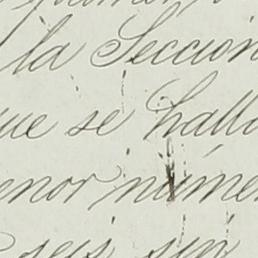 la Sección
que se halla
enor núme
seis sin